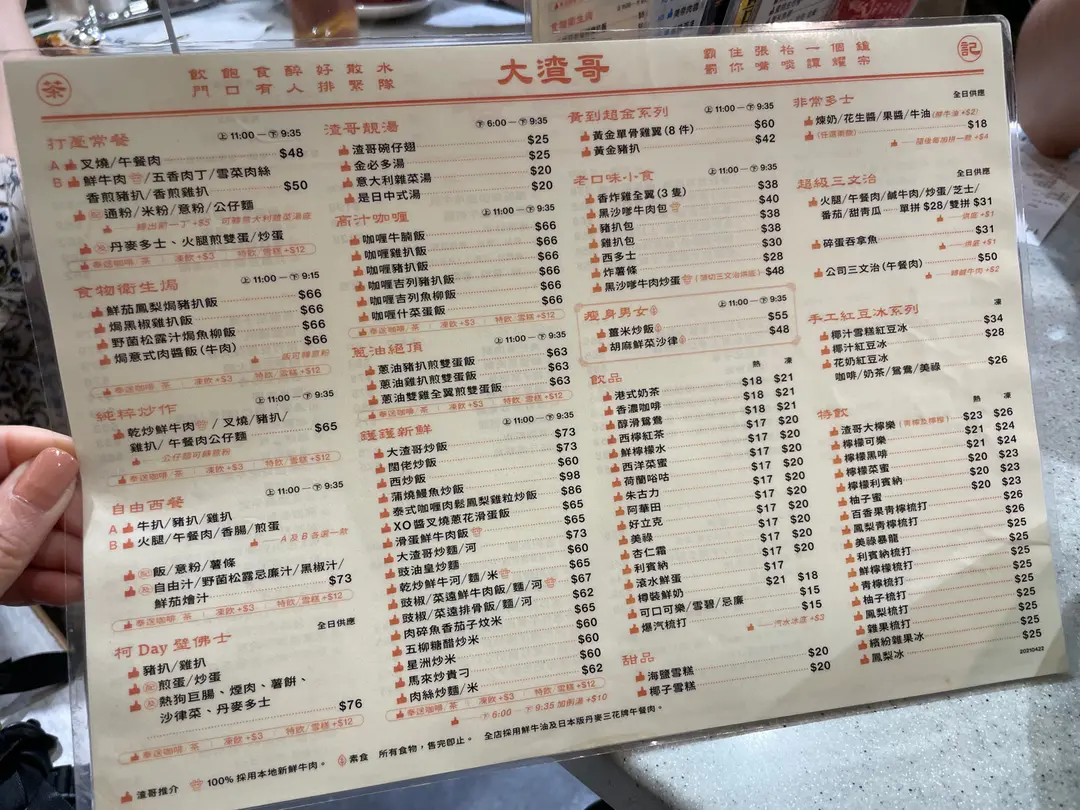 茶
飲飽食醉好散水
門口有人排緊隊
大渣哥
霸住張枱一個鐘
劉你嘴啖譚耀宗
記
打躉常餐
上 11:00 — 下 9:35
A 叉燒/午餐肉 $48
B 鮮牛肉/五香肉丁/雪菜肉絲
香煎豬扒/香煎雞扒 $50
配 通粉/米粉/意粉/公仔麵
轉出前一丁 +$5 可轉意大利雜菜湯底
配 丹麥多士、火腿煎雙蛋/炒蛋
奉送咖啡/茶 凍飲+$3 特飲/雪糕+$12
食物衛生焗
上 11:00 — 下 9:15
鮮茄鳳梨焗豬扒飯 $66
焗黑椒雞扒飯 $66
野菌松露汁焗魚柳飯 $66
焗意式肉醬飯(牛肉) $66
飯可轉意粉
奉送咖啡/茶 凍飲+$3 特飲/雪糕+$12
純粹炒作
上 11:00 — 下 9:35
乾炒鮮牛肉/叉燒/豬扒/
雞扒/午餐肉公仔麵 $65
公仔麵可轉意粉
奉送咖啡/茶 凍飲+$3 特飲/雪糕+$12
自由西餐
上 11:00 — 下 9:35
A 牛扒/豬扒/雞扒
B 火腿/午餐肉/香腸/煎蛋
A 及 B 各選一款
配 飯/意粉/薯條
配 自由汁/野菌松露忌廉汁/黑椒汁/
鮮茄燴汁 $73
奉送咖啡/茶 凍飲+$3 特飲/雪糕+$12
柯 Day 壁佛士
全日供應
豬扒/雞扒
配 煎蛋/炒蛋
配 熱狗巨腸、煙肉、薯餅、
沙律菜、丹麥多士 $76
奉送咖啡/茶 凍飲+$3 特飲/雪糕+$12
渣哥靚湯
下 6:00 — 下 9:35
渣哥碗仔翅 $25
金必多湯 $25
意大利雜菜湯 $20
是日中式湯 $20
高汁咖喱
上 11:00 — 下 9:35
咖喱牛腩飯 $66
咖喱雞扒飯 $66
咖喱豬扒飯 $66
咖喱吉列豬扒飯 $66
咖喱吉列魚柳飯 $66
咖喱什菜蛋飯 $66
奉送咖啡/茶 凍飲+$3 特飲/雪糕+$12
蔥油絕頂
上 11:00 — 下 9:35
蔥油豬扒煎雙蛋飯 $63
蔥油雞扒煎雙蛋飯 $63
蔥油雙雞全翼煎雙蛋飯 $63
奉送咖啡/茶 凍飲+$3 特飲/雪糕+$12
鑊鑊新鮮
上 11:00 — 下 9:35
大渣哥炒飯 $73
闊佬炒飯 $73
西炒飯 $60
蒲燒鰻魚炒飯 $98
泰式咖喱肉鬆鳳梨雞粒炒飯 $86
XO醬叉燒蔥花滑蛋飯 $65
滑蛋鮮牛肉飯 $65
大渣哥炒麵/河 $73
豉油皇炒麵 $60
乾炒鮮牛河/麵/米 $65
豉椒/菜遠鮮牛肉飯/麵/河 $67
豉椒/菜遠排骨飯/麵/河 $62
肉碎魚香茄子炆米 $65
五柳糖醋炒米 $60
星洲炒米 $60
馬來炒貴刁 $60
肉絲炒麵/米 $62
奉送咖啡/茶 凍飲+$3 特飲/雪糕+$12
下 6:00 — 下 9:35 加例湯 +$10
黃到超金系列
上 11:00 — 下 9:35
黃金單骨雞翼(8 件) $60
黃金豬扒 $42
老口味小食
上 11:00 — 下 9:35
香炸雞全翼(3 隻) $38
黑沙嗲牛肉包 $40
豬扒包 $38
雞扒包 $38
西多士 $30
炸薯條 $28
黑沙嗲牛肉炒蛋(預切三文治併底) $48
瘦身男女
上 11:00 — 下 9:35
薑米炒飯 $55
胡麻鮮菜沙律 $48
飲品
熱 凍
港式奶茶 $18 $21
香濃咖啡 $18 $21
醇滑鴛鴦 $18 $21
西檸紅茶 $17 $20
鮮檸檬水 $17 $20
西洋菜蜜 $17 $20
荷蘭哈咕 $17 $20
朱古力 $17 $20
阿華田 $17 $20
好立克 $17 $20
美祿 $17 $20
杏仁霜 $17 $20
利賓納 $17 $20
滾水鮮蛋 $17
樽裝鮮奶 $21 $18
可口可樂/雪碧/忌廉 $15
爆汽梳打 $15
汽水冰底 +$3
甜品
海鹽雪糕 $20
椰子雪糕 $20
非常多士
全日供應
煉奶/花生醬/果醬/牛油(鮮牛油 +$2)
(任選兩款) $18
隨後每加拼一款 +$4
超級三文治
全日供應
火腿/午餐肉/鹹牛肉/炒蛋/芝士/
番茄/甜青瓜 單拼 $28/雙拼 $31
烘底 +$1
碎蛋吞拿魚 $31
烘底 +$1
公司三文治(午餐肉) $50
轉鹹牛肉 +$2
手工紅豆冰系列
凍
椰汁雪糕紅豆冰 $34
椰汁紅豆冰 $28
花奶紅豆冰
咖啡/奶茶/鴛鴦/美祿 $26
特飲
熱 凍
渣哥大檸樂(青檸及檸檬) $23 $26
檸檬可樂 $21 $24
檸檬黑啡 $21 $24
檸檬菜蜜 $20 $23
檸檬利賓納 $20 $23
柚子蜜 $20 $23
百香果青檸梳打 $26
鳳梨青檸梳打 $26
美祿暴龍 $25
利賓納梳打 $25
鮮檸檬梳打 $25
青檸梳打 $25
柚子梳打 $25
鳳梨梳打 $25
雜果梳打 $25
繽紛雜果冰 $25
鳳梨冰 $25
20210422
渣哥推介 100% 採用本地新鮮牛肉。 素食 所有食物,售完即止。 全店採用鮮牛油及日本版丹麥三花牌午餐肉。